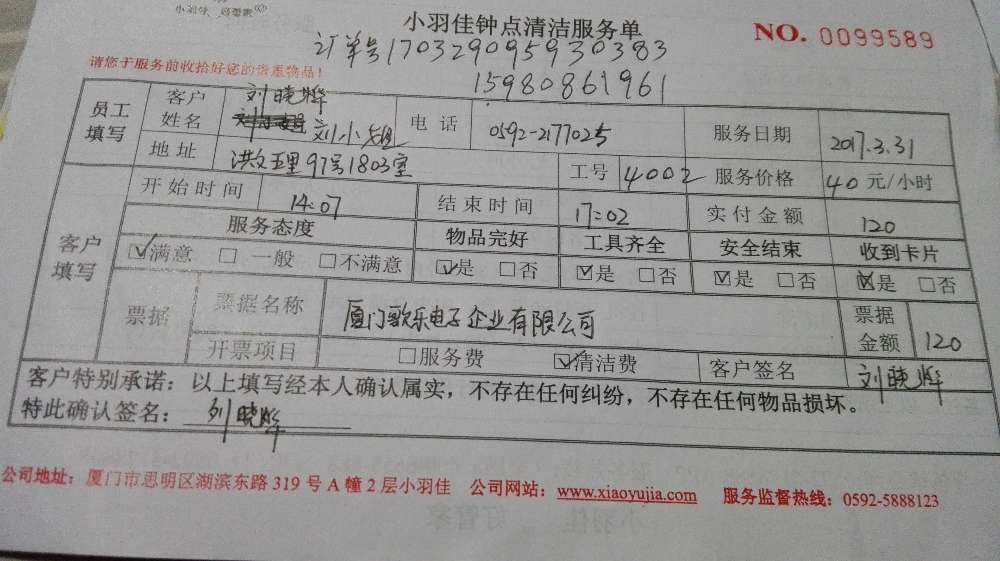 小羽佳 好管家
小羽佳钟点清洁服务单
NO. 0099589
订单号170329095930383
请您于服务前收拾好您的贵重物品!
15980861961
员工填写 客户姓名 刘晓烨 刘小姐 电话 0592-2177025 服务日期 2017.3.31
地址 洪文五里97号1803室 工号 4002 服务价格 40 元/小时
客户填写 开始时间 14:07 结束时间 17:02 实付金额 120
服务态度 物品完好 工具齐全 安全结束 收到卡片
☑满意 □一般 □不满意 ☑是 □否 ☑是 □否 ☑是 □否 ☑是 □否
票据 票据名称 厦门歌乐电子企业有限公司 票据金额 120
开票项目 □服务费 ☑清洁费 客户签名 刘晓烨
客户特别承诺:以上填写经本人确认属实,不存在任何纠纷,不存在任何物品损坏。
特此确认签名: 刘晓烨
公司地址:厦门市思明区湖滨东路 319 号 A 幢 2 层小羽佳 公司网站:www.xiaoyujia.com 服务监督热线:0592-5888123